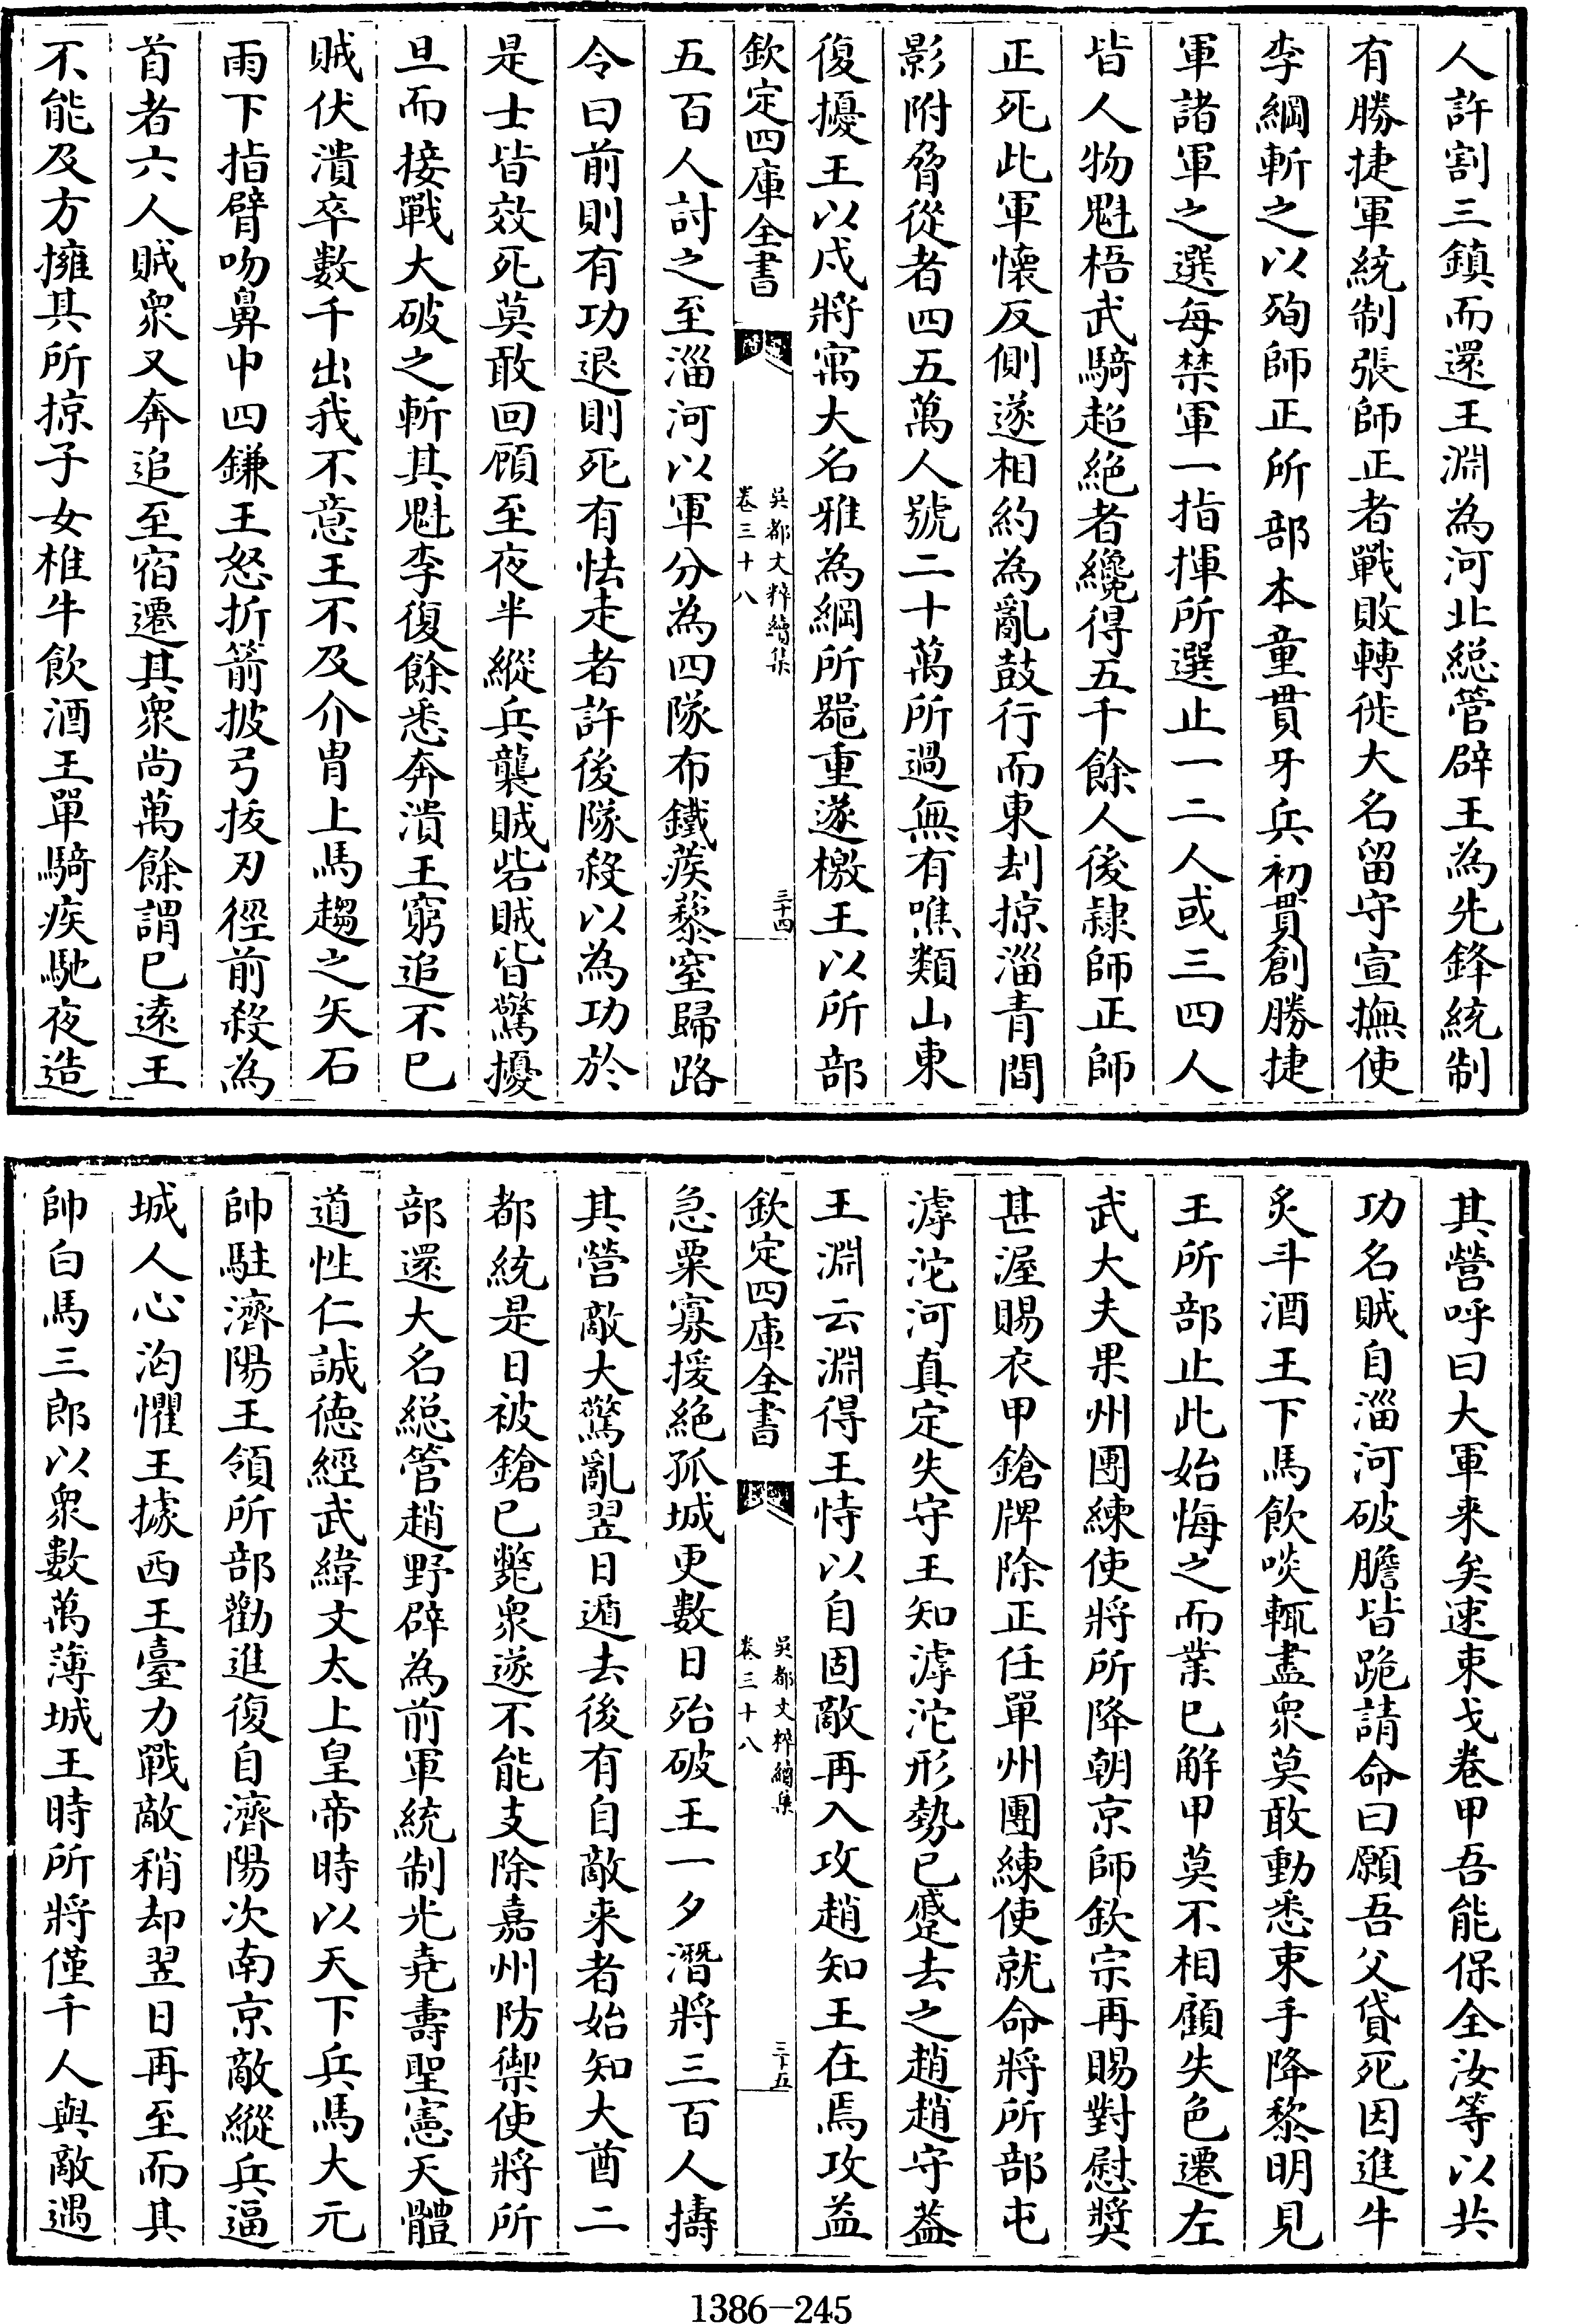 人許割三鎮而還王淵為河北総管辟王為先鋒統制
有勝捷軍統制張師正者戰敗轉徙大名留守宣撫使
李綱斬之以殉師正所部本童貫牙兵初貫創勝捷
軍諸軍之選每禁軍一指揮所選止一二人或三四人
皆人物魁梧武騎超絶者纔得五千餘人後隷師正師
正死此軍懷反側遂相約為亂鼓行而東刦掠淄青間
影附脅從者四五萬人號二十萬所過無有噍類山東
復擾王以戍將寓大名雅為綱所噐重遂檄王以所部
欽定四庫全書
吳都文粹續集
卷三十八
三十四
五百人討之至淄河以軍分為四隊布鐵蒺藜窒歸路
令曰前則有功退則死有怯走者許後隊殺以為功於
是士皆效死莫敢回顧至夜半縱兵襲賊砦賊皆驚擾
旦而接戰大破之斬其魁李復餘悉奔潰王窮追不已
賊伏潰卒數千出我不意王不及介胄上馬趨之矢石
雨下指臂吻鼻中四鎌王怒折箭披弓拔刃徑前殺為
首者六人賊衆又奔追至宿遷其衆尚萬餘謂已遠王
不能及方擁其所掠子女椎牛飲酒王單騎疾馳夜造
其營呼曰大軍来矣速束戈卷甲吾能保全汝等以共
功名賊自淄河破膽皆跪請命曰願吾父貸死因進牛
炙斗酒王下馬飲啖輒盡衆莫敢動悉束手降黎明見
王所部止此始悔之而業已解甲莫不相顧失色遷左
武大夫果州團練使將所降朝京師欽宗再賜對慰奬
甚渥賜衣甲鎗牌除正任單州團練使就命將所部屯
滹沱河真定失守王知滹沱形勢已蹙去之趙趙守葢
王淵云淵得王恃以自固敵再入攻趙知王在焉攻益
欽定四庫全書
吳都文粹續集
卷三十八
三十五
急粟寡援絶孤城更數日殆破王一夕潛將三百人擣
其營敵大驚亂翌日遁去後有自敵来者始知大酋二
都統是日被鎗已斃衆遂不能支除嘉州防禦使將所
部還大名総管趙野辟為前軍統制光堯壽聖憲天體
道性仁誠德經武緯文太上皇帝時以天下兵馬大元
帥駐濟陽王領所部勸進復自濟陽次南京敵縱兵逼
城人心洶懼王據西王臺力戰敵稍却翌日再至而其
帥白馬三郎以衆數萬薄城王時所將僅千人與敵遇
1386-245